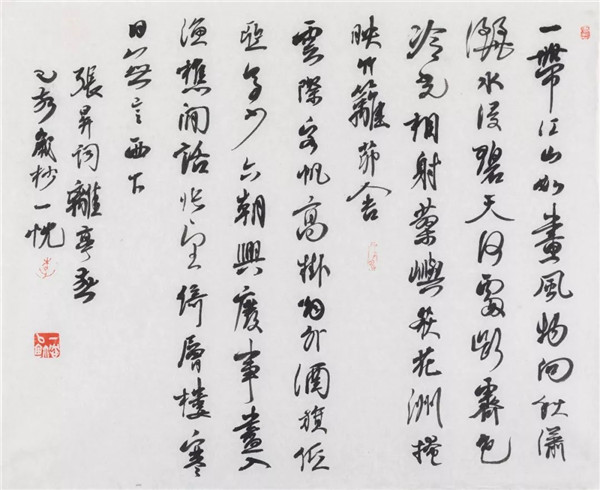 一帶江山如畫風物向秋瀟
灑水浸碧天何處斷霽色
冷光相射蓼嶼荻花洲掩
映竹籬茆舍
雲際客帆高掛烟外酒旗低
亞多少六朝興廢事盡入
漁樵閒話悵望倚層樓寒
日無言西下
張昇詞離亭燕
己亥歲杪一